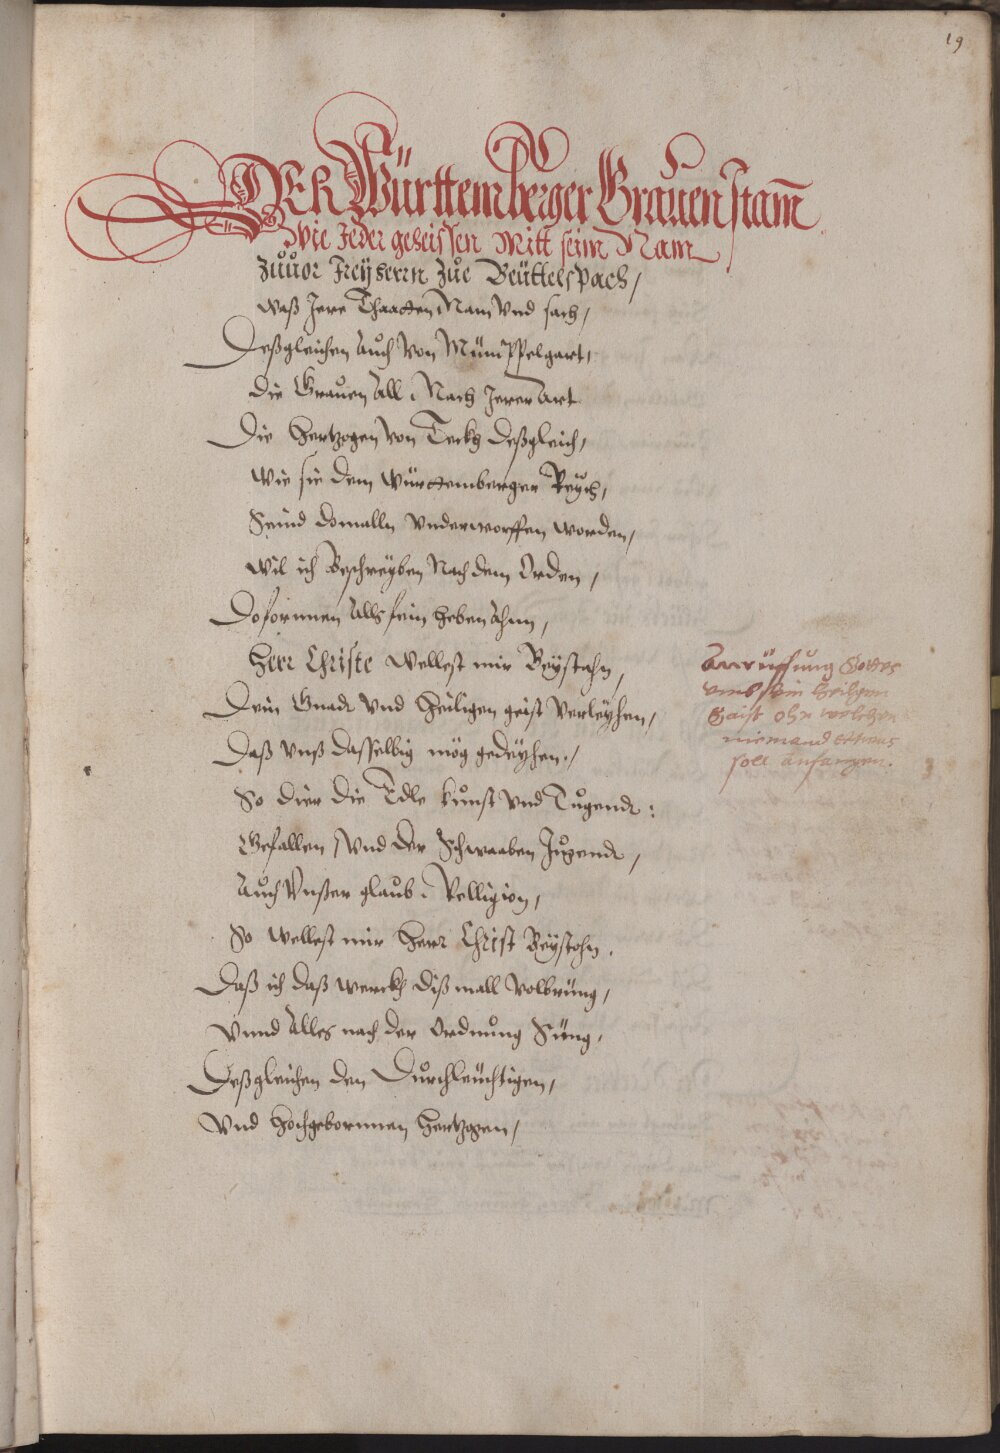 19
DER Württemberger Grauen stam̄
Wie Jeder geheissen Mitt seim Nam
Zůuor Freyherrn Zue Beüttelspach,
Waß Jere Thaatten Nam Vnd sach,
Deßgleichen Auch Von Mümppelgart,
die Grauen All Nach Jerer Art
Die Hertzogen Von Teckh deßgleich,
Wie sie dem Württemberger Reych,
Seind domalln Vnderworffen worden,
Wil ich Beschreyben Nach dem Orden,
Doformen Alls fein heben Ahn,
Herr Christe Wellest mir Beystahn,
Dein Gnad Vnd Heiligen geist Verleyhen,
Daß Vnß dasselbig mög gedeyhen,
So dier die Edle kunst Vnd Tugendt:
Gefallen, Vnd der Schwaaben Jugendt,
Auch Vnßer glaub Relligion,
So Wellest mir Herr Christ Beystohn.
Daß ich daß Werckh diß mall Volbrüng,
Vnnd Alles nach der Ordnung Süng,
Deßgleichen den Durchleüchtigen,
Vnd Hochgebornnen Hertzogen,
Anrüffung Gottes
vmb sein heilgen
Gaist ohn welchen
niemand ettwas
soll anfangen.